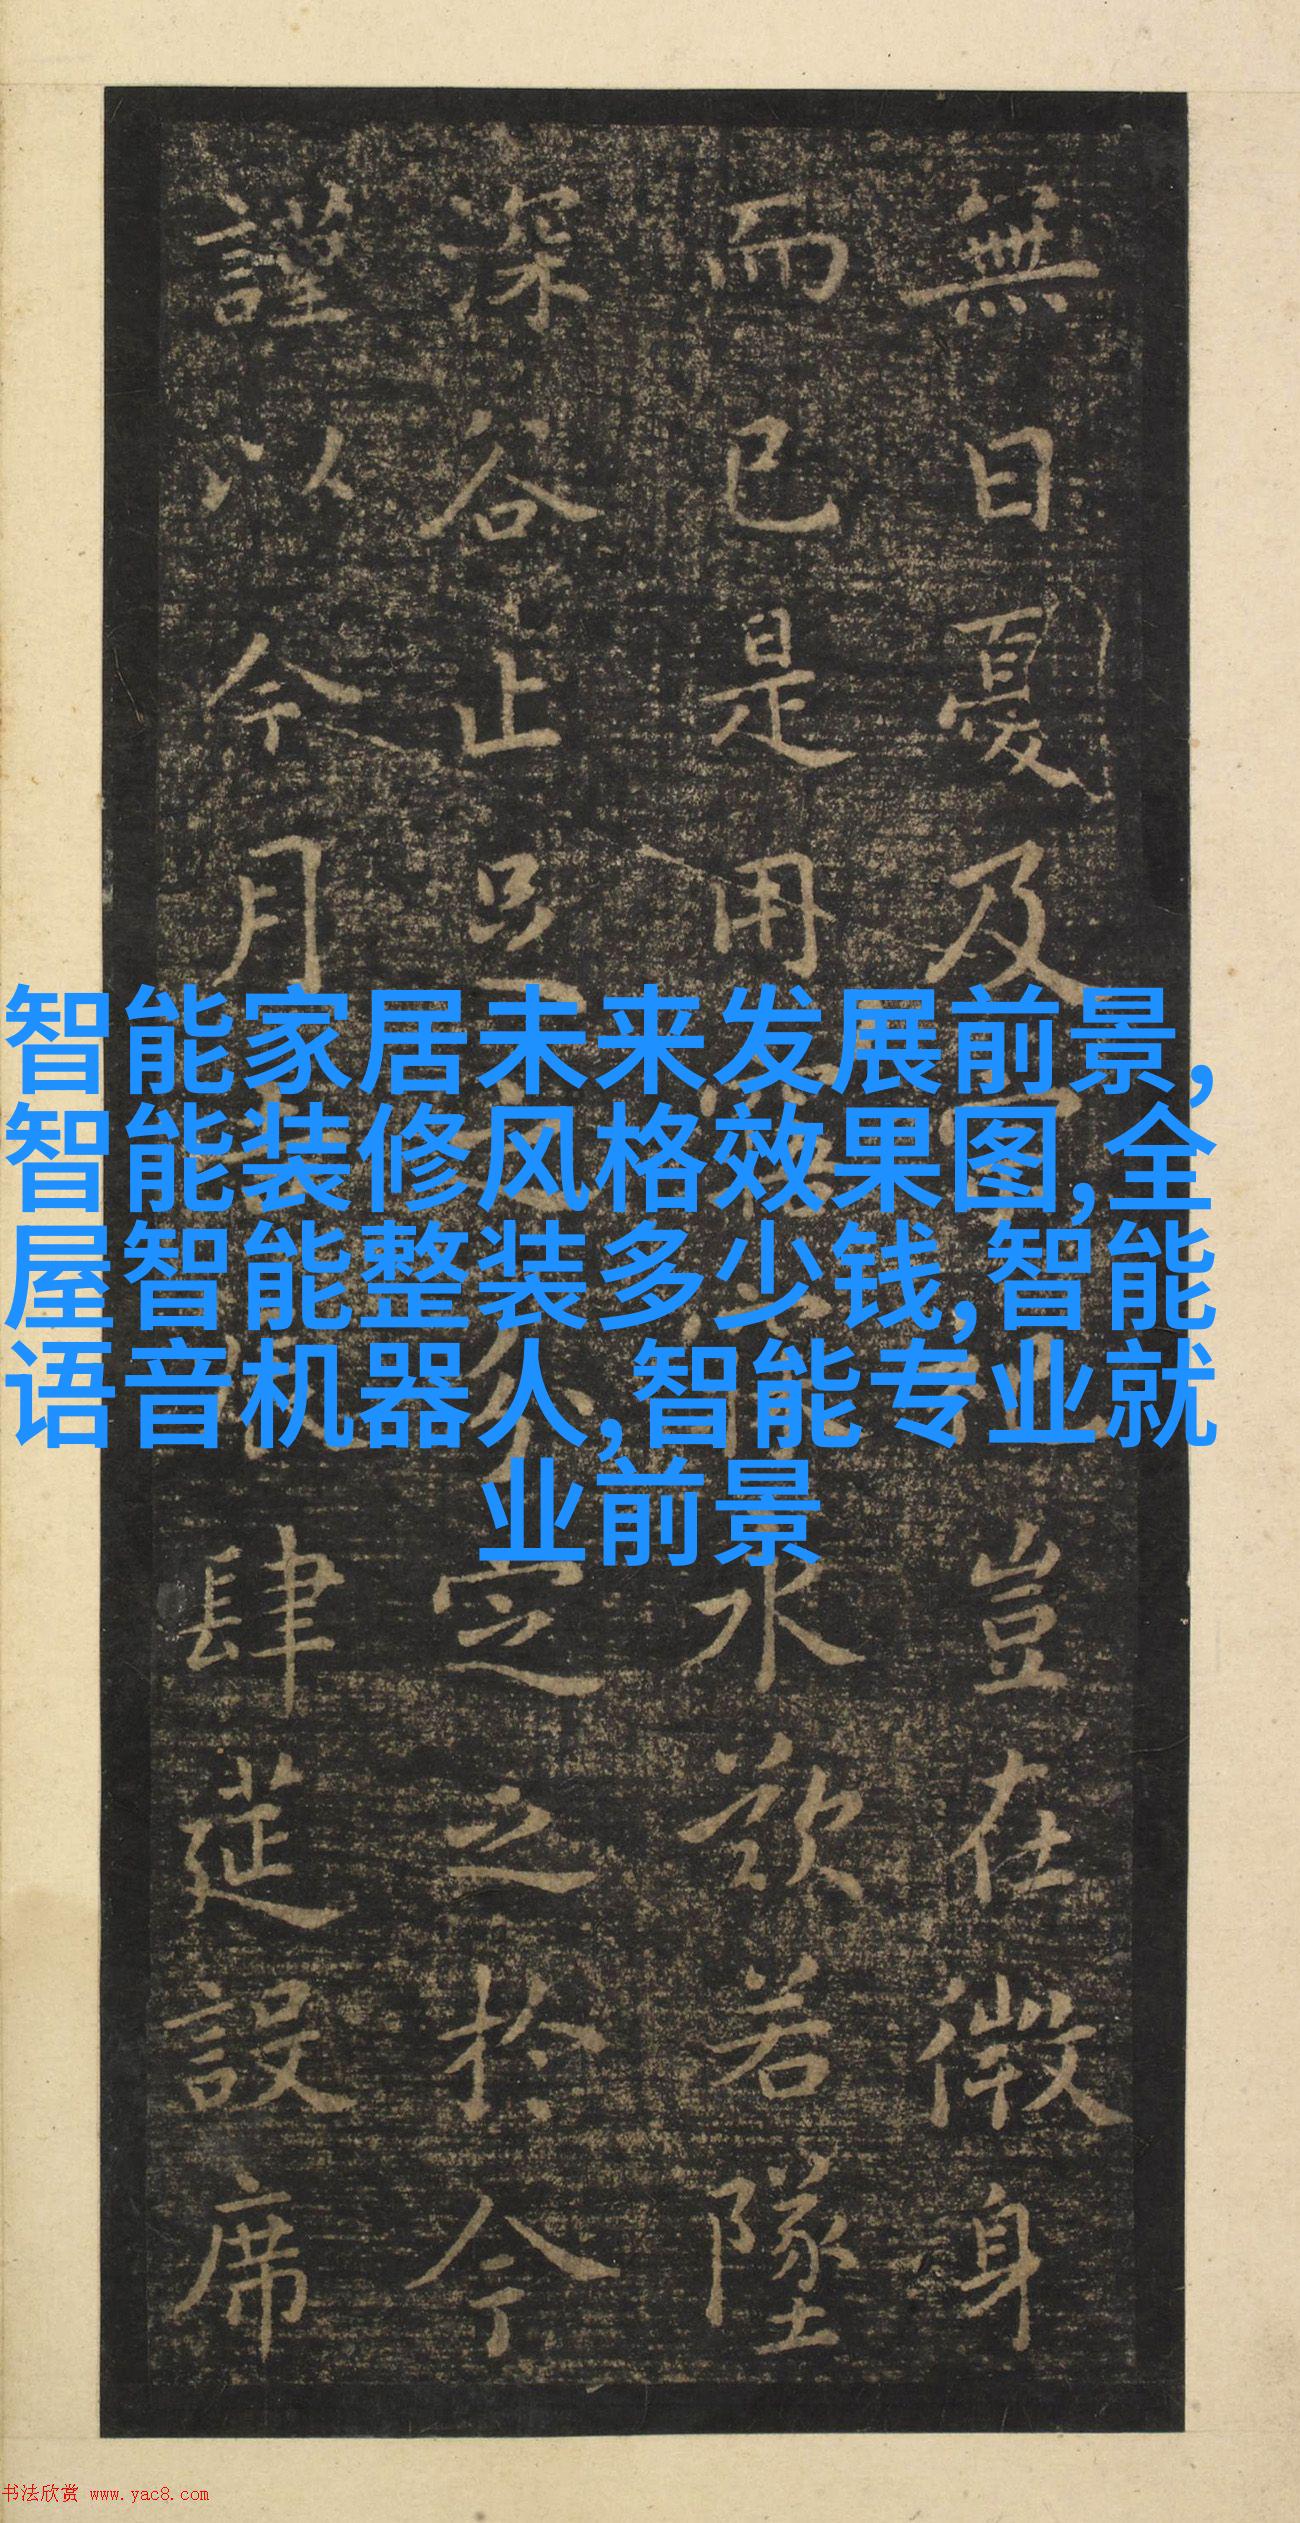 無日憂及豈在微身
而已是用永歎若墜
深谷止足之分定之於今
謹以今月肆筵設席
智能家居未来发展前景,
智能装修风格效果图,全
屋智能整装多少钱,智能
语音机器人,智能专业就
业前景
书法欣赏 www.yac8.com